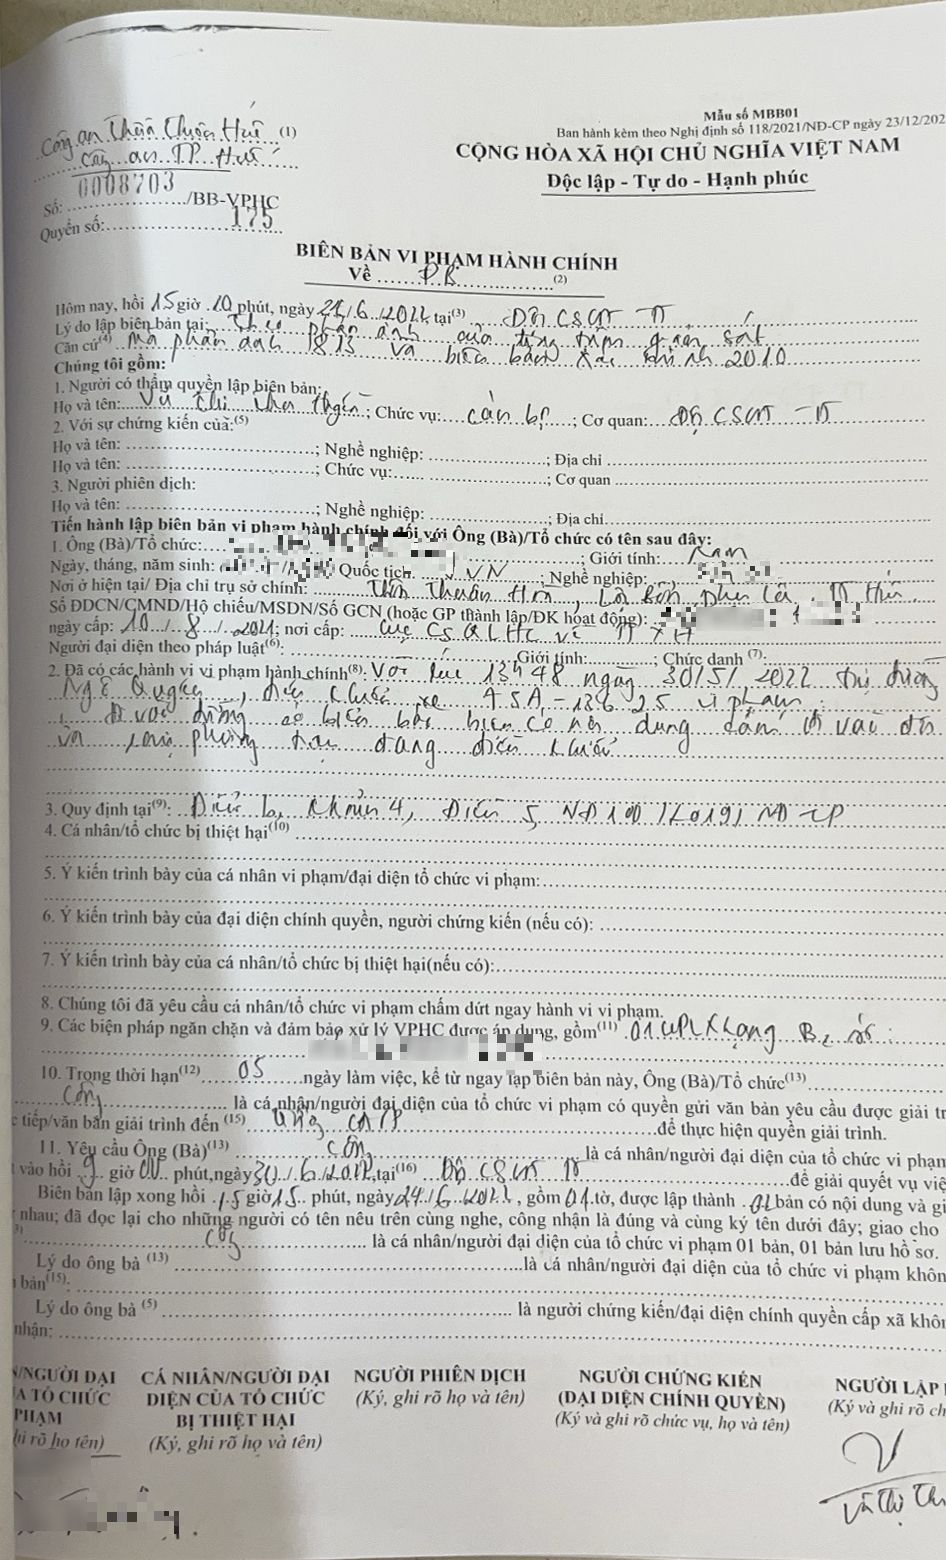 Công an Thừa Thiên Huế (1)
Công an TP. Huế
Mẫu số MBB01
Ban hành kèm theo Nghị định số 118/2021/NĐ-CP ngày 23/12/202
CỘNG HÒA XÃ HỘI CHỦ NGHĨA VIỆT NAM
Độc lập - Tự do - Hạnh phúc
Số: 0008703 /BB-VPHC
Quyển số: 175
BIÊN BẢN VI PHẠM HÀNH CHÍNH
Về ĐB (2)
Hôm nay, hồi 15 giờ 10 phút, ngày /6/2022, tại(3) Đội CSGT
Lý do lập biên bản tại: Theo phản ánh của trung tâm giám sát
Căn cứ(4) Mã phản ánh 1813 và biên bản xác minh 2010
Chúng tôi gồm:
1. Người có thẩm quyền lập biên bản:
Họ và tên: Vũ Thị ; Chức vụ: cán bộ ; Cơ quan: Đội CSGT -
2. Với sự chứng kiến của:(5)
Họ và tên: ; Nghề nghiệp: ; Địa chỉ
Họ và tên: ; Chức vụ: ; Cơ quan
3. Người phiên dịch:
Họ và tên: ; Nghề nghiệp: ; Địa chỉ
Tiến hành lập biên bản vi phạm hành chính đối với Ông (Bà)/Tổ chức có tên sau đây:
1. Ông (Bà)/Tổ chức: ; Giới tính: Nam
Ngày, tháng, năm sinh: Quốc tịch VN ; Nghề nghiệp:
Nơi ở hiện tại/ Địa chỉ trụ sở chính: Thôn Thuận Hoà, Lộc Bổn, Phú Lộc,
Số ĐDCN/CMND/Hộ chiếu/MSDN/Số GCN (hoặc GP thành lập/ĐK hoạt động):
ngày cấp: 10/8/2021; nơi cấp: cục CSQLHC về TTXH
Người đại diện theo pháp luật(6): Giới tính: ; Chức danh (7):
2. Đã có các hành vi vi phạm hành chính(8): Vào lúc 13h48 ngày 30/5/2022 tại đường
Ngô Quyền, điều khiển xe 75A-136.25 vi phạm:
Đi vào đường có biển báo hiệu có nội dung cấm đi vào đối
và loại phương tiện đang điều khiển
3. Quy định tại(9): Điểm b, Khoản 4, Điều 5 NĐ100/2019/NĐ-CP
4. Cá nhân/tổ chức bị thiệt hại(10)
5. Ý kiến trình bày của cá nhân vi phạm/đại diện tổ chức vi phạm:
6. Ý kiến trình bày của đại diện chính quyền, người chứng kiến (nếu có):
7. Ý kiến trình bày của cá nhân/tổ chức bị thiệt hại(nếu có):
8. Chúng tôi đã yêu cầu cá nhân/tổ chức vi phạm chấm dứt ngay hành vi vi phạm.
9. Các biện pháp ngăn chặn và đảm bảo xử lý VPHC được áp dụng, gồm(11) 01 GPLX hạng B2 số:
10. Trong thời hạn(12) 05 ngày làm việc, kể từ ngay lập biên bản này, Ông (Bà)/Tổ chức(13)
là cá nhân/người đại diện của tổ chức vi phạm có quyền gửi văn bản yêu cầu được giải tr
c tiếp/văn bản giải trình đến (15) để thực hiện quyền giải trình.
11. Yêu cầu Ông (Bà)(13) là cá nhân/người đại diện của tổ chức vi phạm
t vào hồi 9 giờ 00 phút, ngày 30/6/2022, tại(16) Đội CSGT để giải quyết vụ việ
Biên bản lập xong hồi 15 giờ 15 phút, ngày 24/6/2022, gồm 01 tờ, được lập thành bản có nội dung và gi
nhau; đã đọc lại cho những người có tên nêu trên cùng nghe, công nhận là đúng và cùng ký tên dưới đây; giao cho
là cá nhân/người đại diện của tổ chức vi phạm 01 bản, 01 bản lưu hồ sơ.
Lý do ông bà (13) là cá nhân/người đại diện của tổ chức vi phạm khôn
bản(15):
Lý do ông bà (5) là người chứng kiến/đại diện chính quyền cấp xã khôn
nhận:
N/NGƯỜI ĐẠI
A TỔ CHỨC
PHẠM
hi rõ họ tên)
CÁ NHÂN/NGƯỜI ĐẠI
DIỆN CỦA TỔ CHỨC
BỊ THIỆT HẠI
(Ký, ghi rõ họ và tên)
NGƯỜI PHIÊN DỊCH
(Ký, ghi rõ họ và tên)
NGƯỜI CHỨNG KIẾN
(ĐẠI DIỆN CHÍNH QUYỀN)
(Ký và ghi rõ chức vụ, họ và tên)
NGƯỜI LẬP
(Ký và ghi rõ ch
Vũ Thị